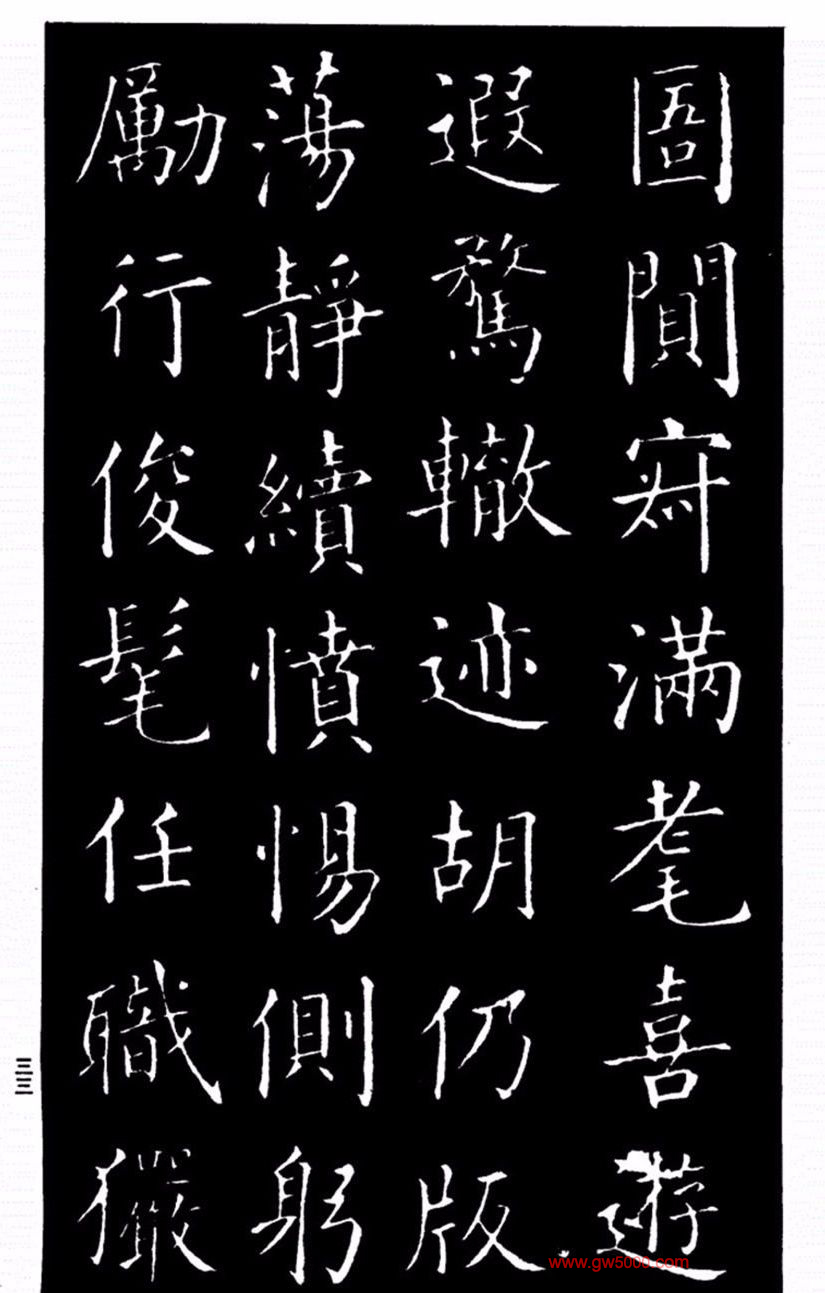 圄閴寂滿耄喜遊
遐騖轍迹胡仍版
蕩靜續憤惕側躬
勵行俊髦任職玁
三三
www.gw5000.com